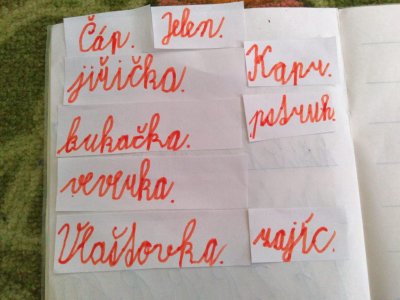 Čáp. Jelen.
jiřička. Kapr.
kukačka. pstruh.
veverka.
Vlaštovka. zajíc.